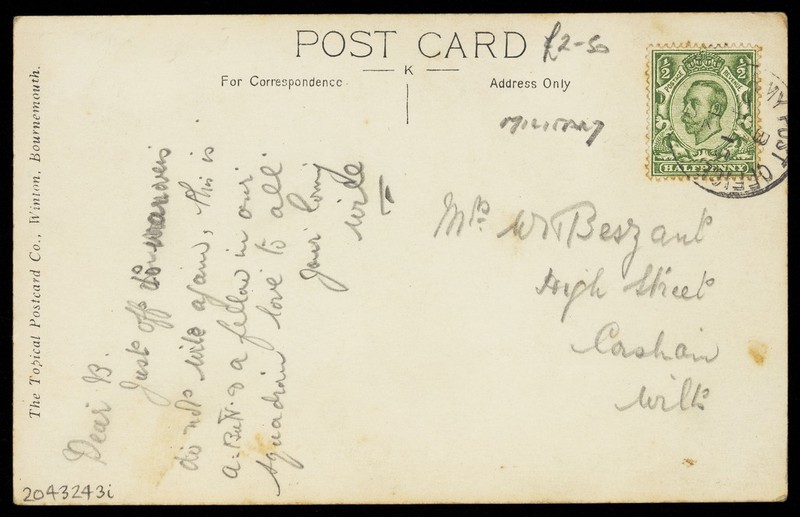 POST CARD
£2-50
K
For Correspondence.
Address Only
MILITARY
½ ½
POSTAGE REVENUE
HALFPENNY
POST OFF
The Topical Postcard Co., Winton, Bournemouth.
Dear B.
Just off to
do not write again, this is
a fellow in our
Squadron love to all
your loving
Will
Mrs W Beszant
High Street
Wilts
2043243i